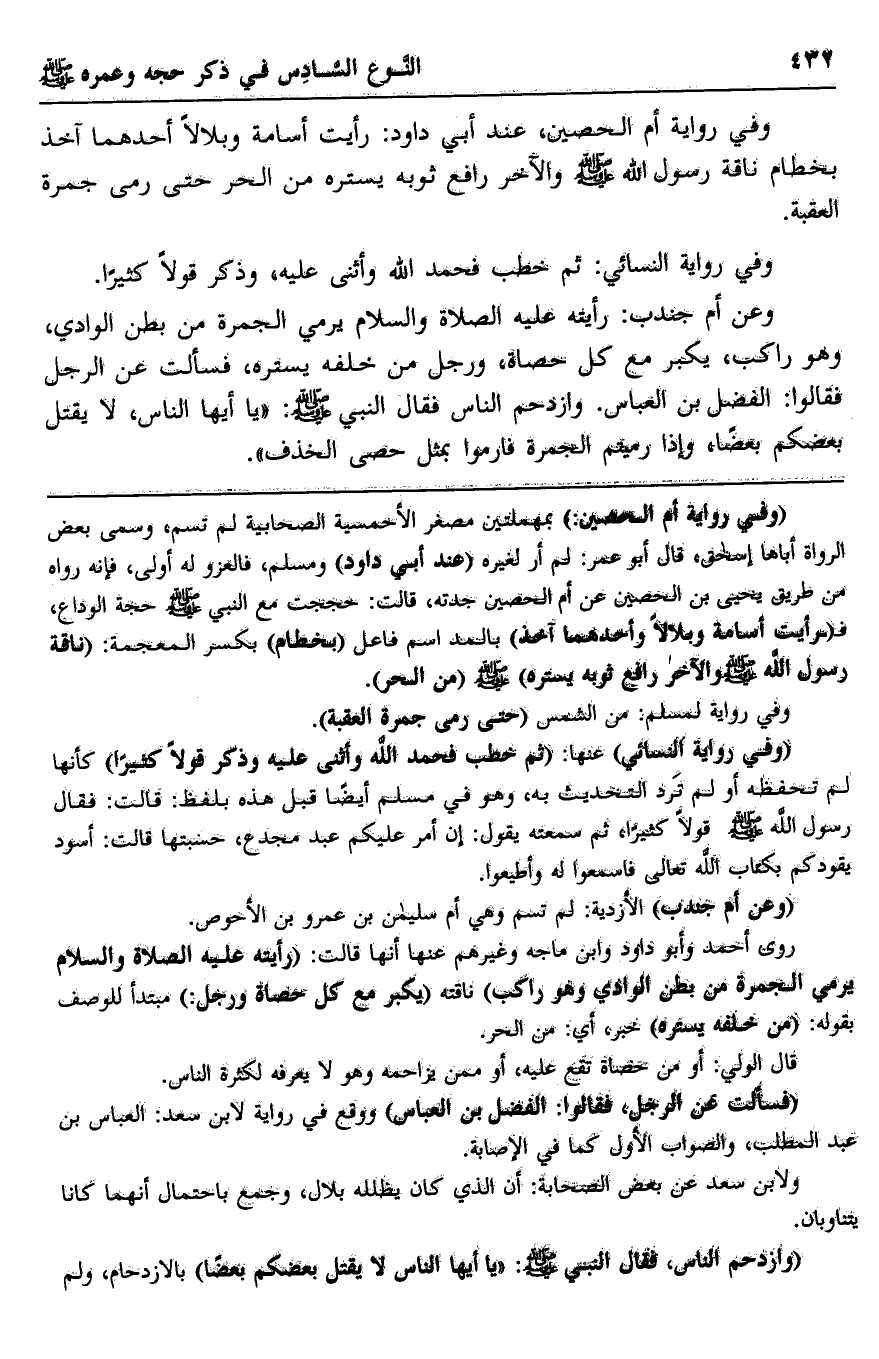 ٤٣٢
النَّوع السَّادِس في ذكر حجه وعمره ﷺ
وفي رواية أم الحصين، عند أبي داود: رأيت أسامة وبلالاً أحدهما آخذ
بخطام ناقة رسول الله ﷺ والآخر رافع ثوبه يستره من الحر حتى رمى جمرة
العقبة.
وفي رواية النسائي: ثم خطب فحمد الله وأثنى عليه، وذكر قولاً كثيرًا.
وعن أم جندب: رأيته عليه الصلاة والسلام يرمي الجمرة من بطن الوادي،
وهو راكب، يكبر مع كل حصاة، ورجل من خلفه يستره، فسألت عن الرجل
فقالوا: الفضل بن العباس. وازدحم الناس فقال النبي ﷺ: «يا أيها الناس، لا يقتل
بعضكم بعضًا، وإذا رميتم الجمرة فارموا بمثل حصى الخذف».
(وفي رواية أم الحصين:) بمهملتين مصغر الأحمسية الصحابية لم تسم، وسمى بعض
الرواة أباها إسحٰق، قال أبو عمر: لم أر لغيره (عند أبي داود) ومسلم، فالعزو له أولى، فإنه رواه
من طريق يحيى بن الحصين عن أم الحصين جدته، قالت: حججت مع النبي ﷺ حجة الوداع،
فـ(رأيت أسامة وبلالاً وأحدهما آخذ) بالمد اسم فاعل (بخطام) بكسر المعجمة: (ناقة
رسول اللَّه ﷺ والآخر رافع ثوبه يستره) ﷺ (من الحر).
وفي رواية لمسلم: من الشمس (حتى رمى جمرة العقبة).
(وفي رواية النسائي) عنها: (ثم خطب فحمد اللَّه وأثنى عليه وذكر قولاً كثيرًا) كأنها
لم تحفظه أو لم تَرِد التحديث به، وهو في مسلم أيضًا قبل هذه بلفظ: قالت: فقال
رسول اللَّه ﷺ قولاً كثيرًا، ثم سمعته يقول: إن أمر عليكم عبد مجدع، حسبتها قالت: أسود
يقودكم بكتاب اللَّه تعالى فاسمعوا له وأطيعوا.
(وعن أم جندب) الأزدية: لم تسم وهي أم سليمٰن بن عمرو بن الأحوص.
روى أحمد وأبو داود وابن ماجه وغيرهم عنها أنها قالت: (رأيته عليه الصلاة والسلام
يرمي الجمرة من بطن الوادي وهو راكب) ناقته (يكبر مع كل حصاة ورجل:) مبتدأ للوصف
بقوله: (من خلفه يستره) خبر، أي: من الحر.
قال الولي: أو من حصاة تقع عليه، أو ممن يزاحمه وهو لا يعرفه لكثرة الناس.
(فسألت عن الرجل، فقالوا: الفضل بن العباس) ووقع في رواية لابن سعد: العباس بن
عبد المطلب، والصواب الأول كما في الإصابة.
ولابن سعد عن بعض الصحابة: أن الذي كان يظلله بلال، وجمع باحتمال أنهما كانا
يتناوبان.
(وازدحم الناس، فقال النبي ﷺ: «يا أيها الناس لا يقتل بعضكم بعضًا) بالازدحام، ولم